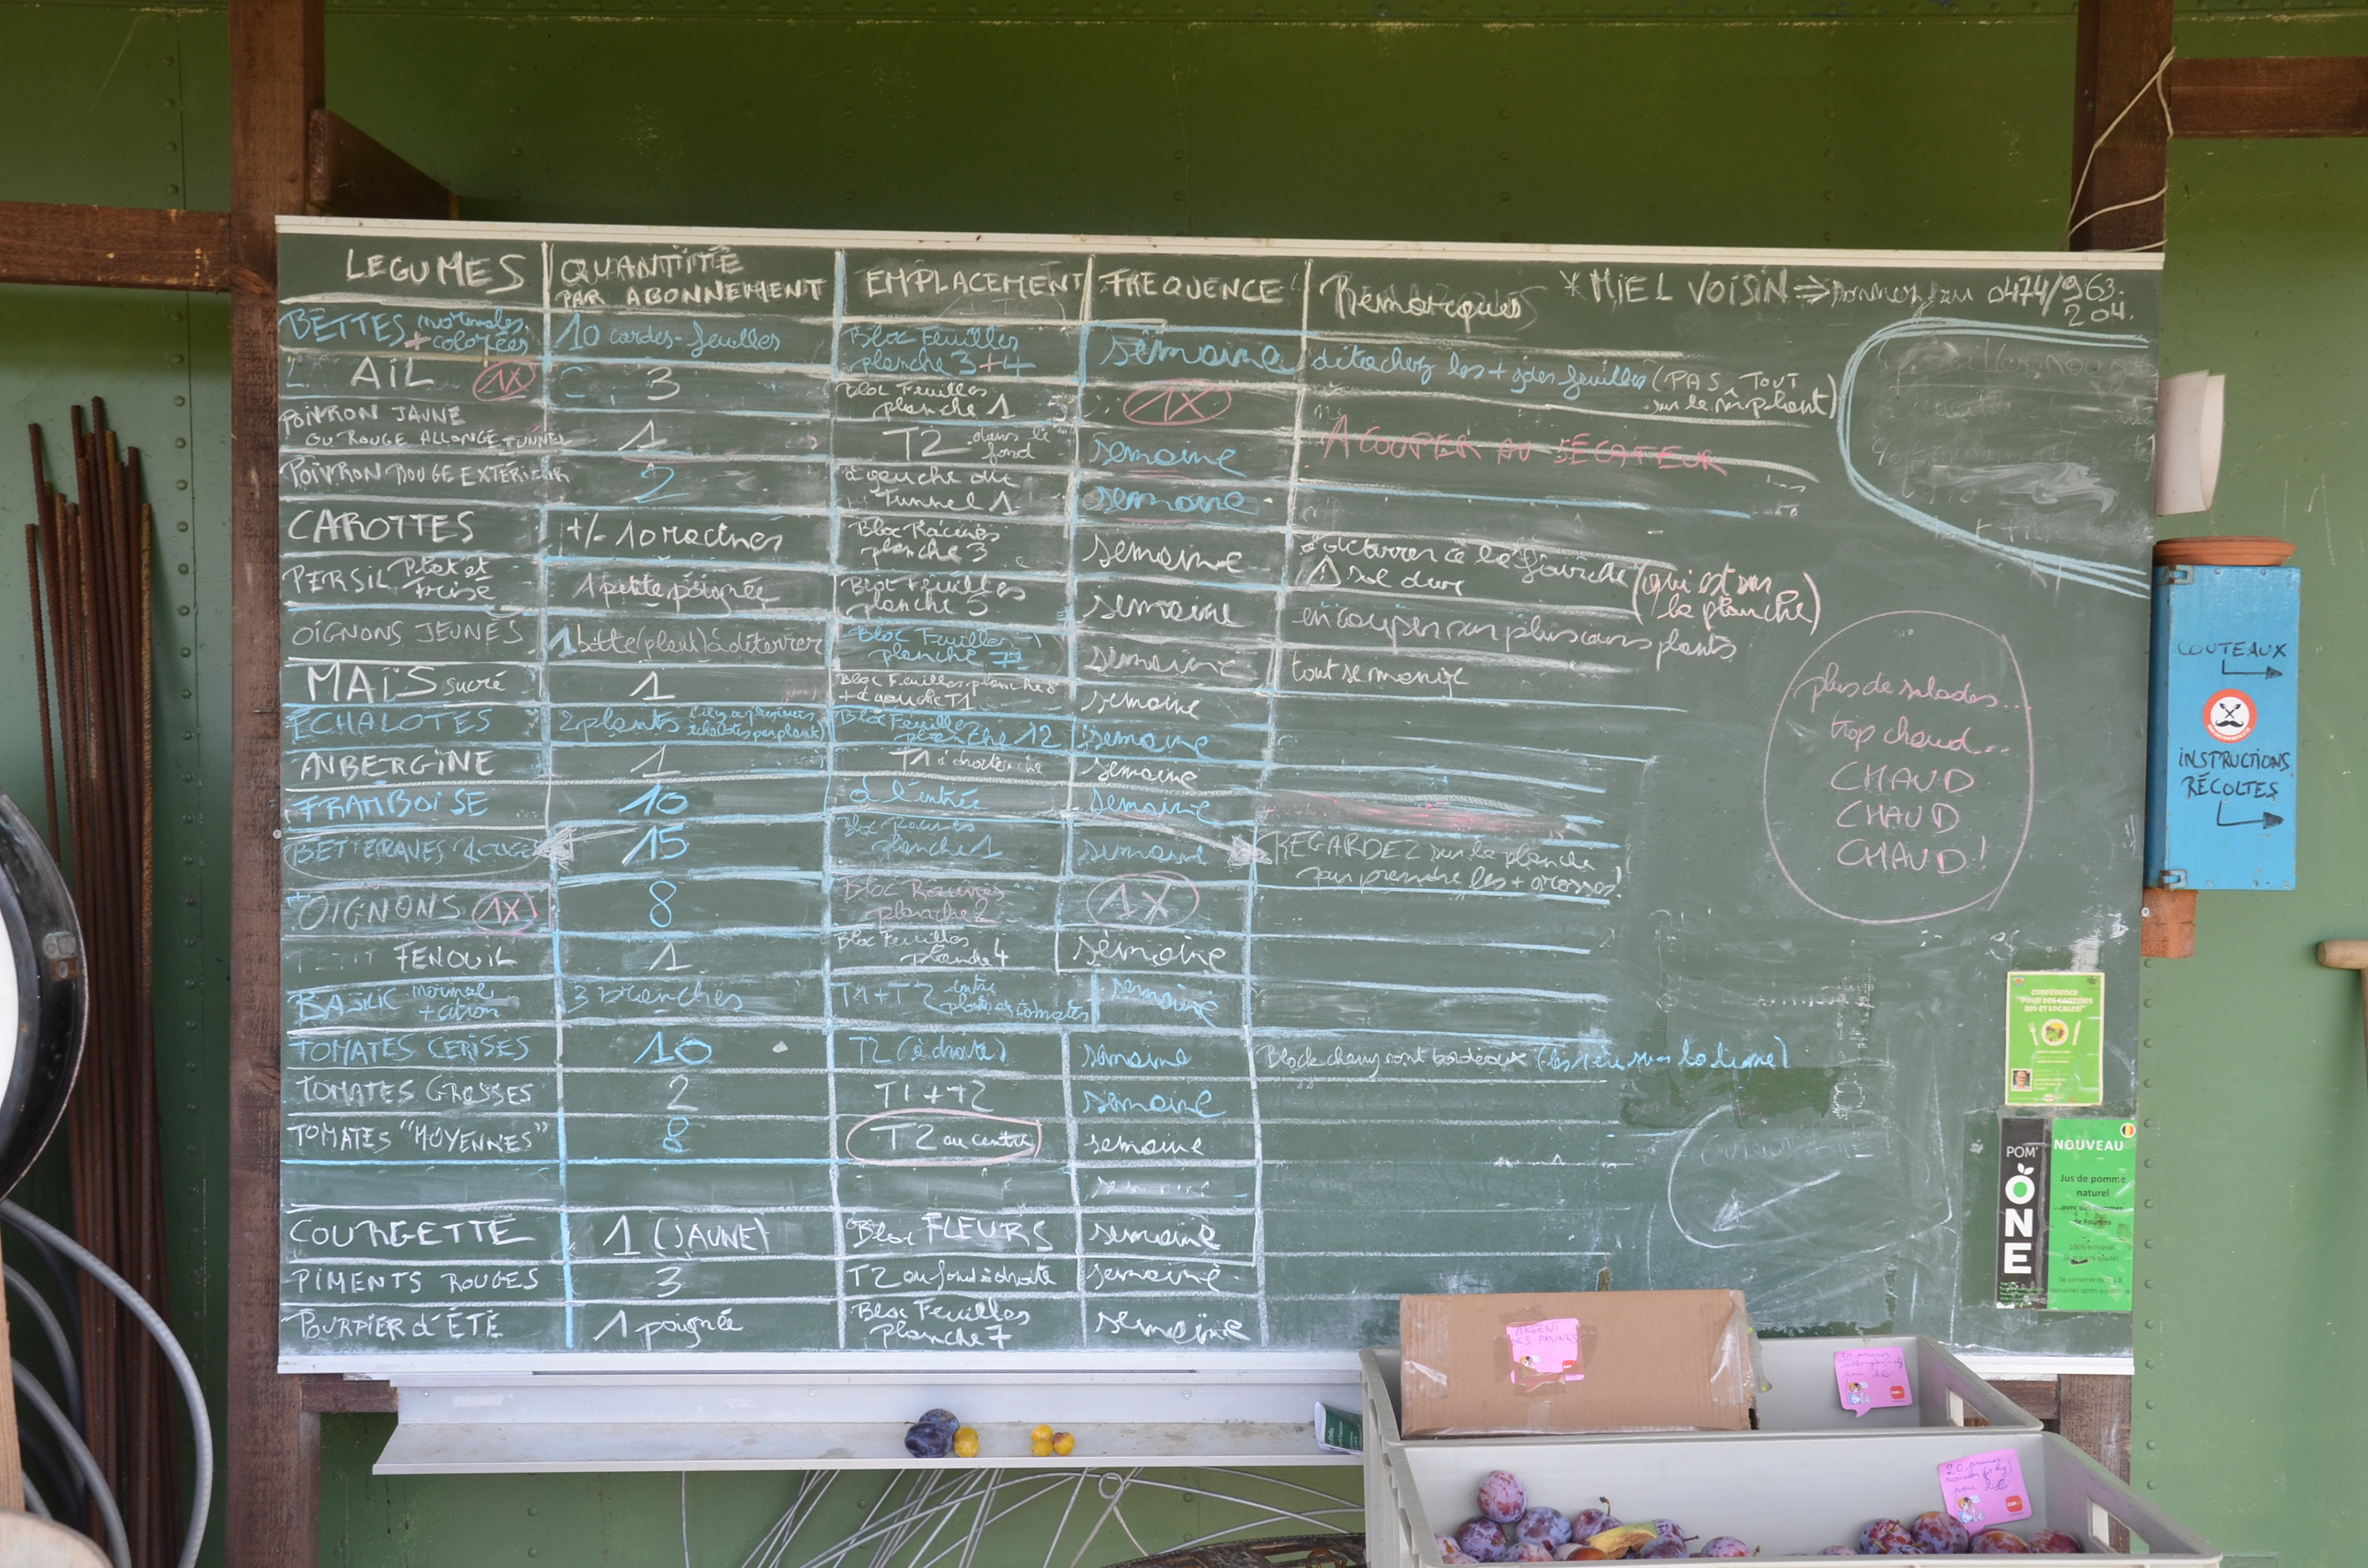 LEGUMES QUANTITÉ PAR ABONNEMENT EMPLACEMENT FREQUENCE Remarques * MIEL VOISIN => au 0474/963.
204.
BETTES normales + colorées 10 cardes-feuilles Bloc Feuilles planche 3+4 semaine détachez les + g des feuilles (PAS TOUT sur le m plant)
AIL 1X 3 Bloc Feuilles planche 1 1X
POIVRON JAUNE OU ROUGE ALLONGE TUNNEL 1 T2 dans le fond semaine A COUPER AU SECATEUR
POIVRON ROUGE EXTERIEUR 2 à gauche du Tunnel 1 semaine
CAROTTES +/- 10 racines Bloc Racines planche 3 semaine à déterrer à la fourche (qui est sur la planche)
⚠ sol dur
PERSIL Plat et frisé 1 petite poignée Bloc Feuilles planche 5 semaine en couper sur plusieurs plants
OIGNONS JEUNES 1 botte (plant) à déterrer Bloc Feuilles planche 7 semaine tout se mange
MAÏS sucré 1 Bloc Feuilles planche + à gauche T1 semaine
ECHALOTES 2 plants (il y a plusieurs échalotes par plant) Bloc Feuilles planche 12 semaine
AUBERGINE 1 T1 à droite semaine
FRAMBOISE 10 à l'entrée semaine
BETTERAVES ROUGES 15 Bloc Racines planche 1 semaine REGARDEZ sur la planche
pour prendre les + grosses!
OIGNONS 1X 8 Bloc Racines planche 2 1X
FENOUIL 1 Bloc Feuilles planche 4 semaine
BASILIC normal + citron 3 branches T1+T2 entre plants tomates semaine
TOMATES CERISES 10 T2 (à droite) semaine Black cherry sont bordeaux la ligne)
TOMATES GROSSES 2 T1+T2 semaine
TOMATES "MOYENNES" 8 T2 au centre semaine
COURGETTE 1 (JAUNE) Bloc FLEURS semaine
PIMENTS ROUGES 3 T2 au fond à droite semaine
POURPIER d'ÉTÉ 1 poignée Bloc Feuilles planche 7 semaine
plus de salades..
trop chaud...
CHAUD
CHAUD
CHAUD!
COUTEAUX
INSTRUCTIONS
RÉCOLTES
CONFÉRENCE
"POUR DES CANTINES
BIO ET LOCALES!"
POM'
ONE
NOUVEAU
Jus de pomme
naturel
ARGENT
DES PRUNES
20 prunes
pour 2€